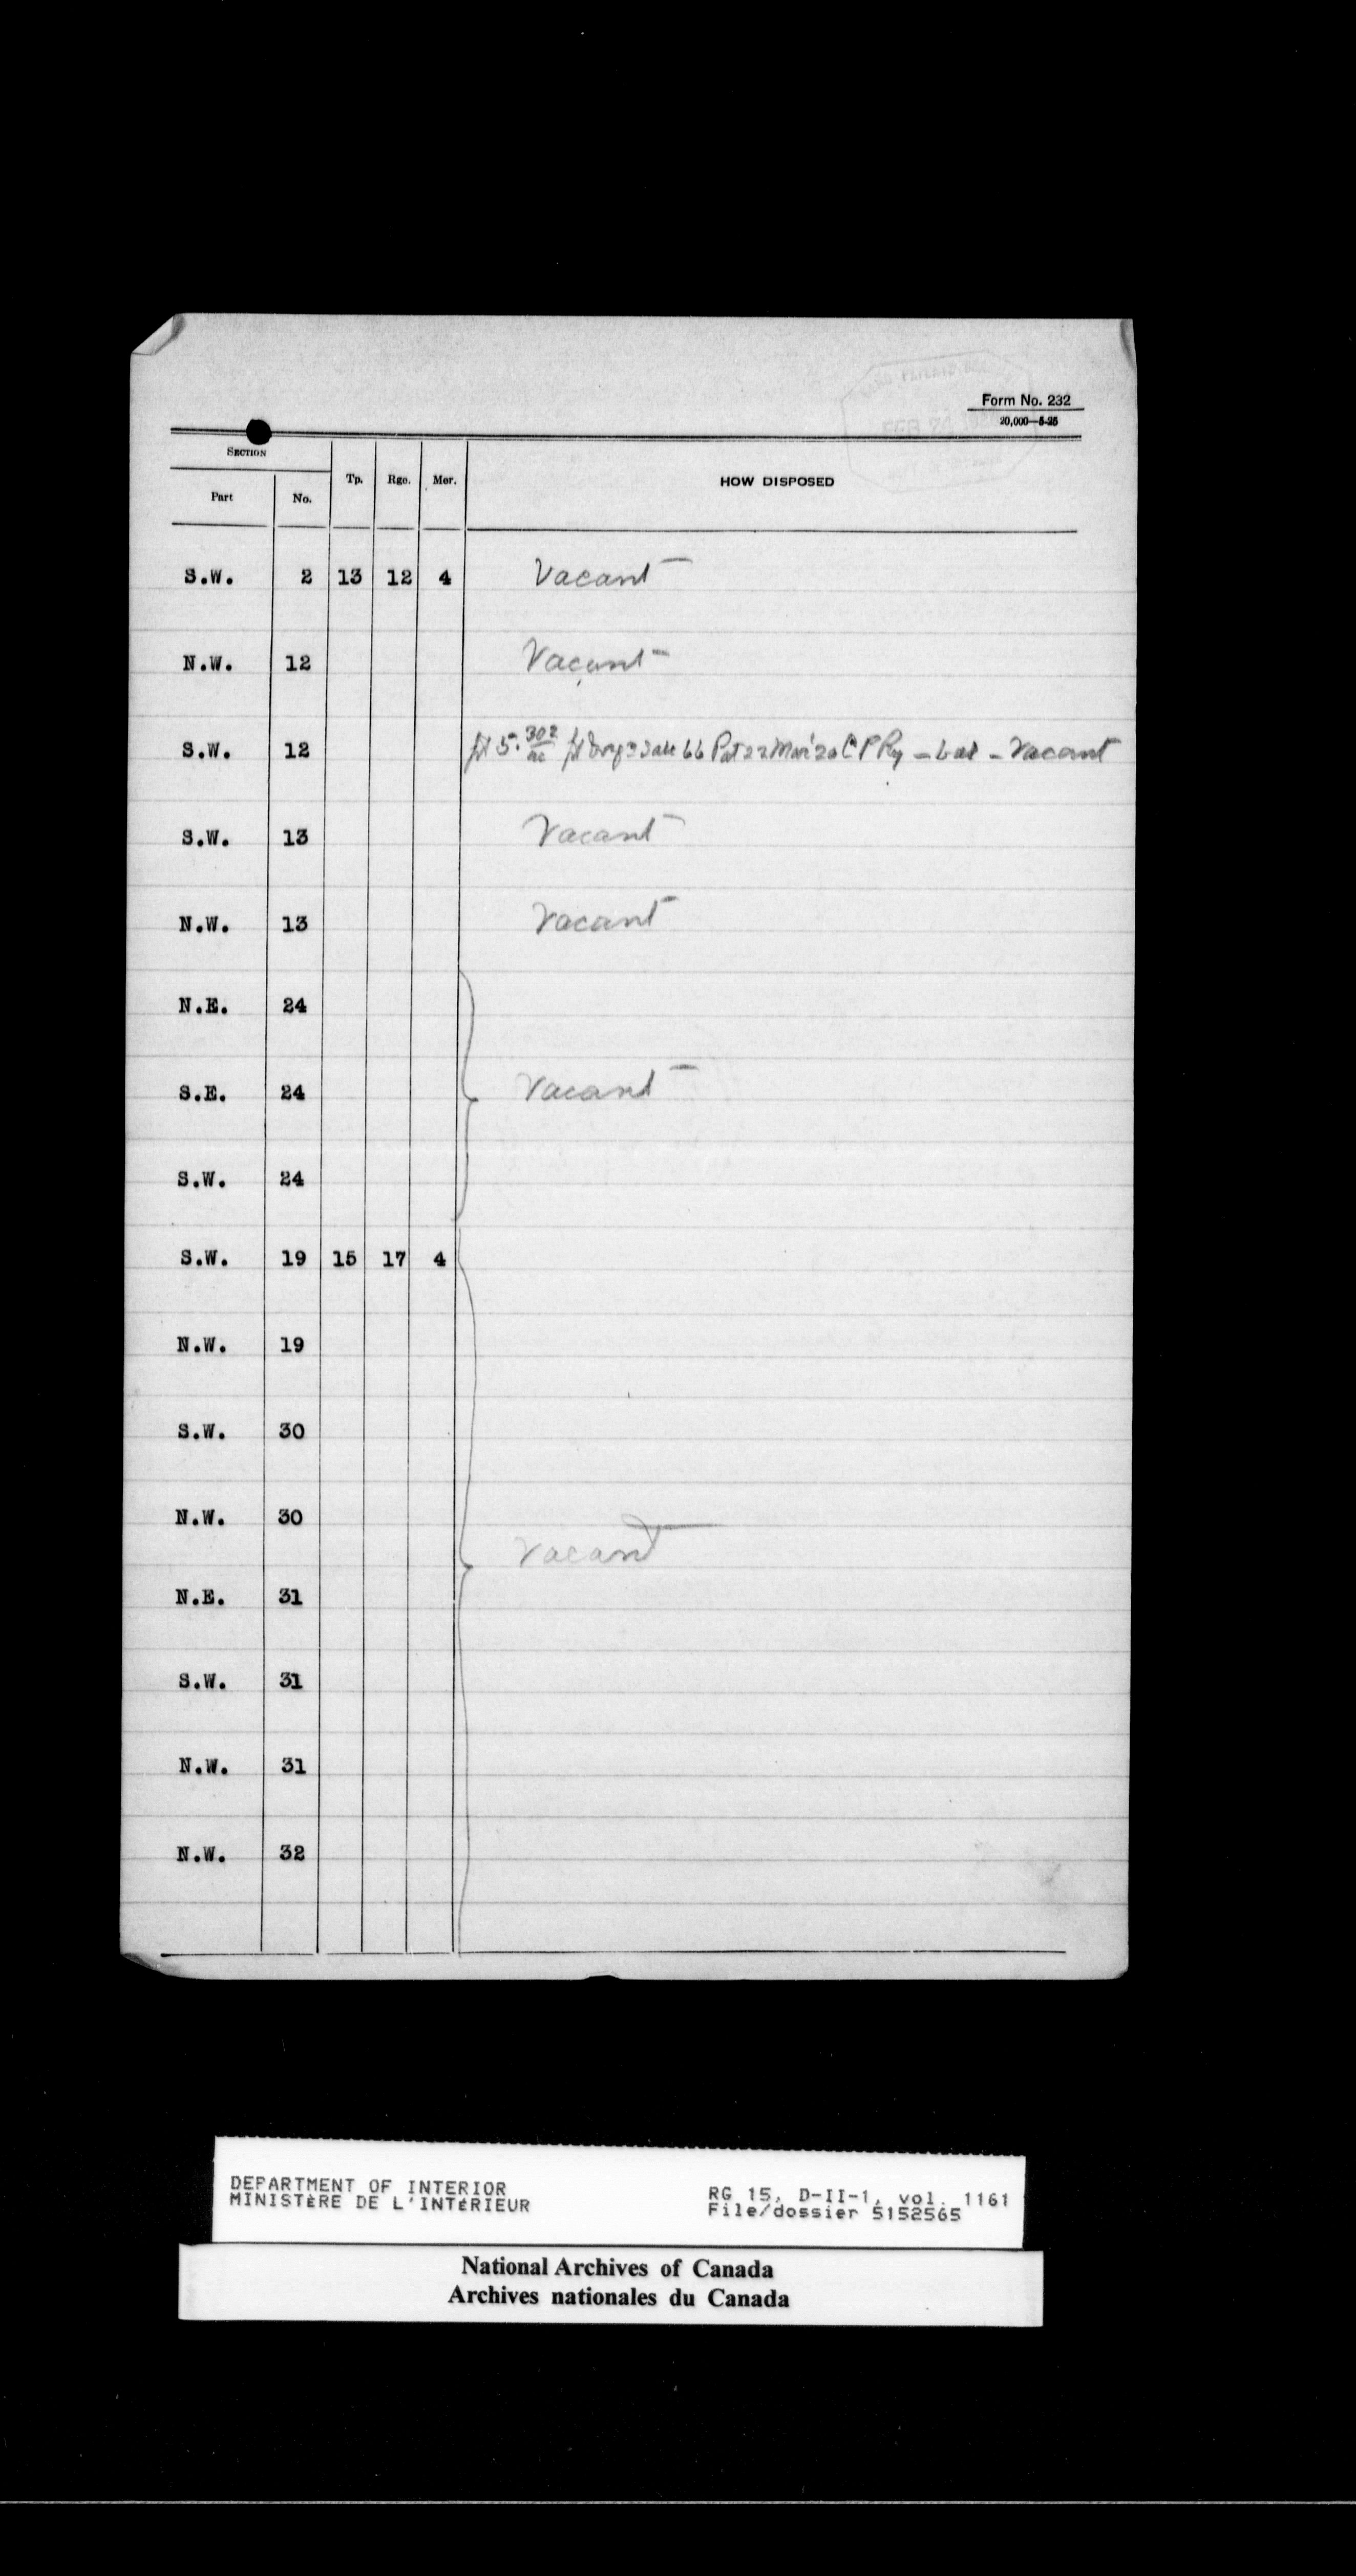 LAND PATENTS
FEB 24
Form No. 232
20,000—5-25
SECTION
Part No. Tp. Rge. Mer. HOW DISPOSED
S.W. 2 13 12 4 Vacant
N.W. 12 Vacant
S.W. 12 pt 5.302 ac Sale 66 Pat 22 Mar '20 C P Ry – bal – Vacant
S.W. 13 Vacant
N.W. 13 Vacant
N.E. 24
S.E. 24 Vacant
S.W. 24
S.W. 19 15 17 4
N.W. 19
S.W. 30
N.W. 30
Vacant
N.E. 31
S.W. 31
N.W. 31
N.W. 32
DEPARTMENT OF INTERIOR
MINISTÈRE DE L'INTÉRIEUR
RG 15, D-II-1, vol. 1161
File/dossier 5152565
National Archives of Canada
Archives nationales du Canada